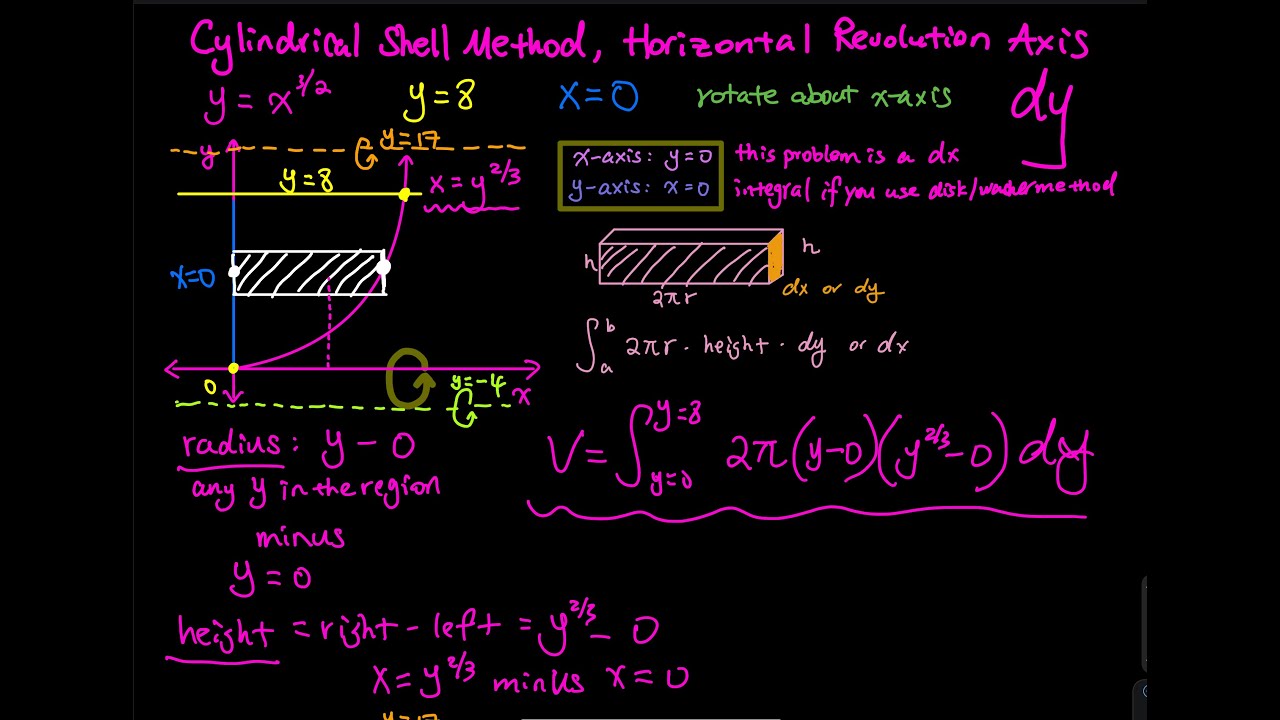 Cylindrical Shell Method, Horizontal Revolution Axis
y = x^3/2 y = 8 x = 0 rotate about x-axis dy
y y = 17
y = 8
x = y^2/3
x-axis: y = 0
y-axis: x = 0
this problem is a dx
integral if you use disk/washer method
x = 0
h
2πr
h
dx or dy
∫_a^b 2πr · height · dy or dx
0
y = -4
x
radius: y - 0
any y in the region
minus
y = 0
V = ∫_{y=0}^{y=8} 2π(y-0)(y^2/3 - 0) dy
height = right - left = y^2/3 - 0
x = y^2/3 minus x = 0
y = 17